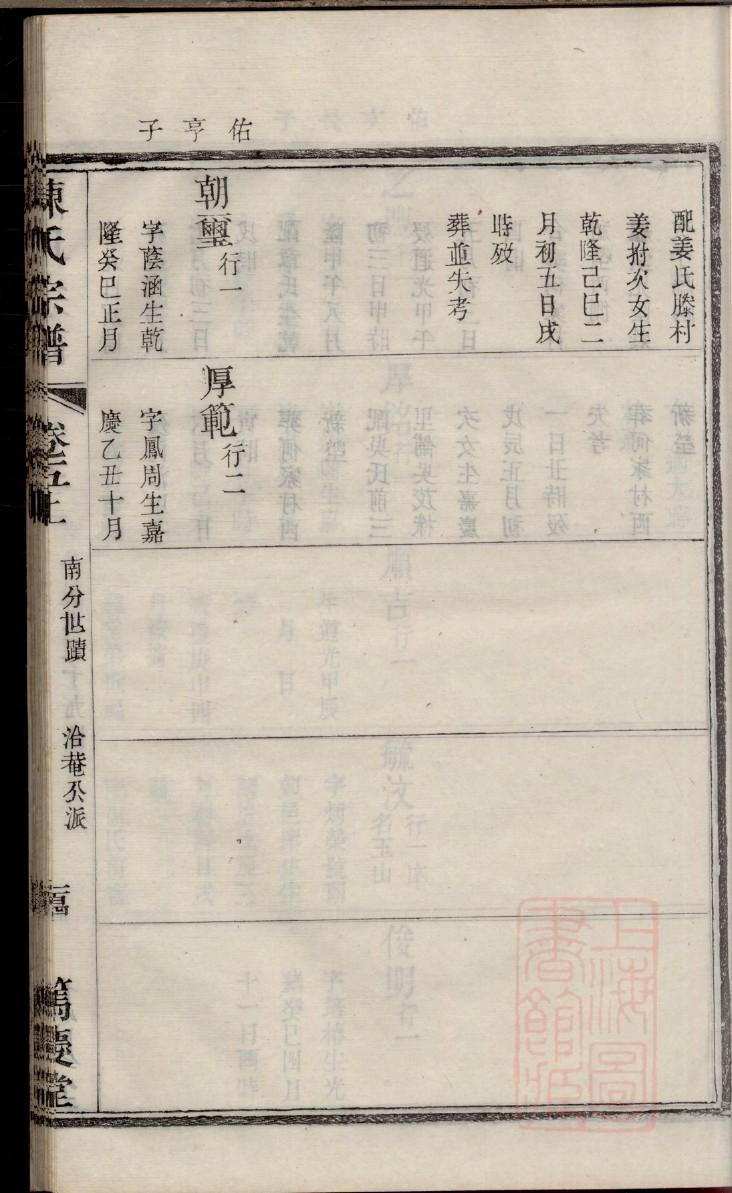 佑亨子
配姜氏滕村
姜拊次女生
乾隆己巳二
月初五日戌
時歿
葬並失考
朝璽行一
字蔭涵生乾
隆癸巳正月
厚範行二
字鳳周生嘉
慶乙丑十月
陳氏宗譜
卷五上
南分世蹟
洽菴公派
篤慶堂
上海圖書館藏